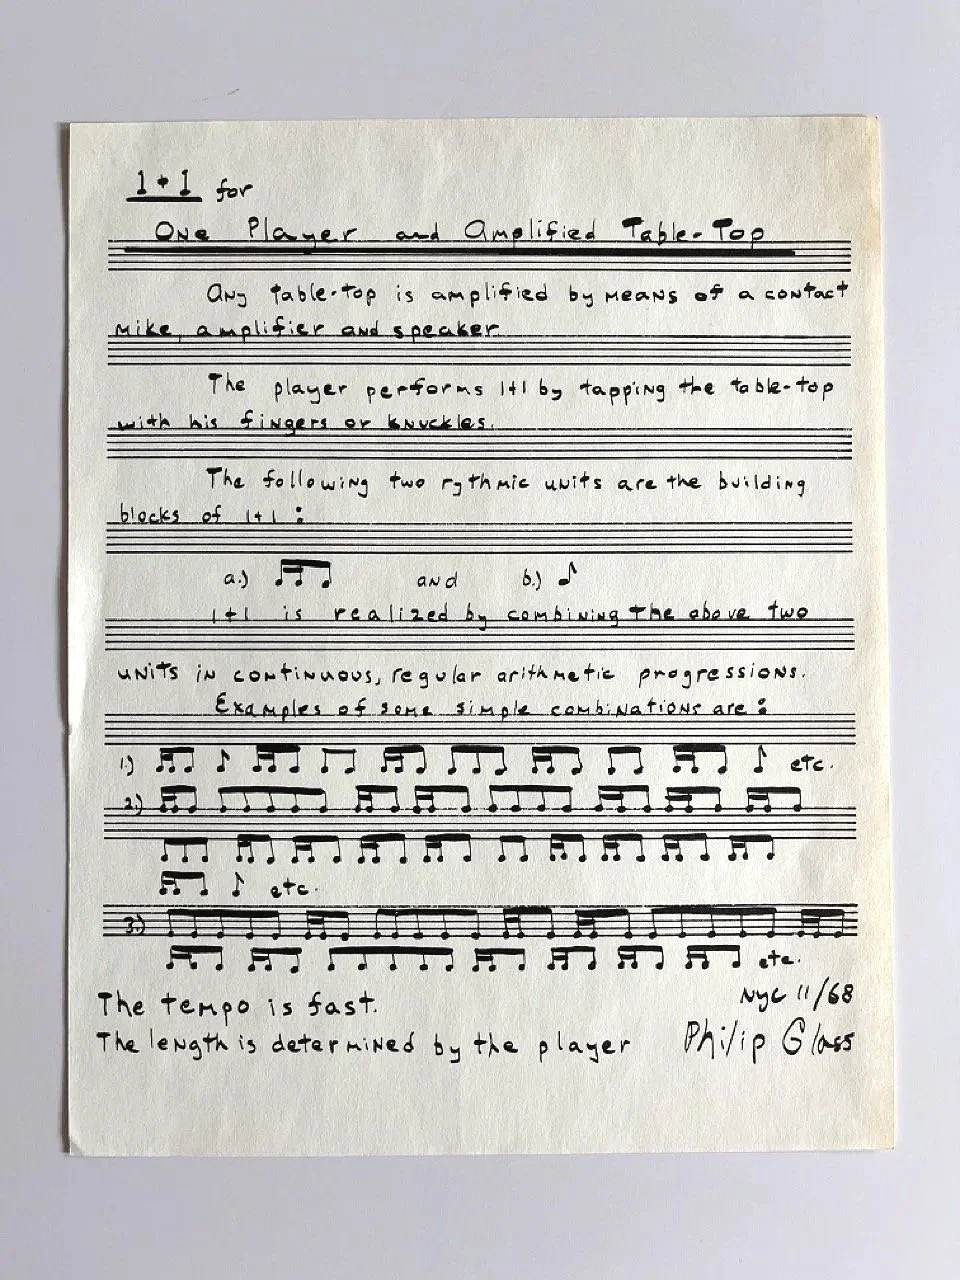 1+1 for
One Player and Amplified Table-Top
Any table-top is amplified by means of a contact
mike, amplifier and speaker.
The player performs 1+1 by tapping the table-top
with his fingers or knuckles.
The following two rythmic units are the building
blocks of 1+1 :
a.) and b.)
1+1 is realized by combining the above two
units in continuous, regular arithmetic progressions.
Examples of some simple combinations are :
1.) etc.
2.)
etc.
3.)
etc.
The tempo is fast. NYC 11/68
The length is determined by the player Philip Glass